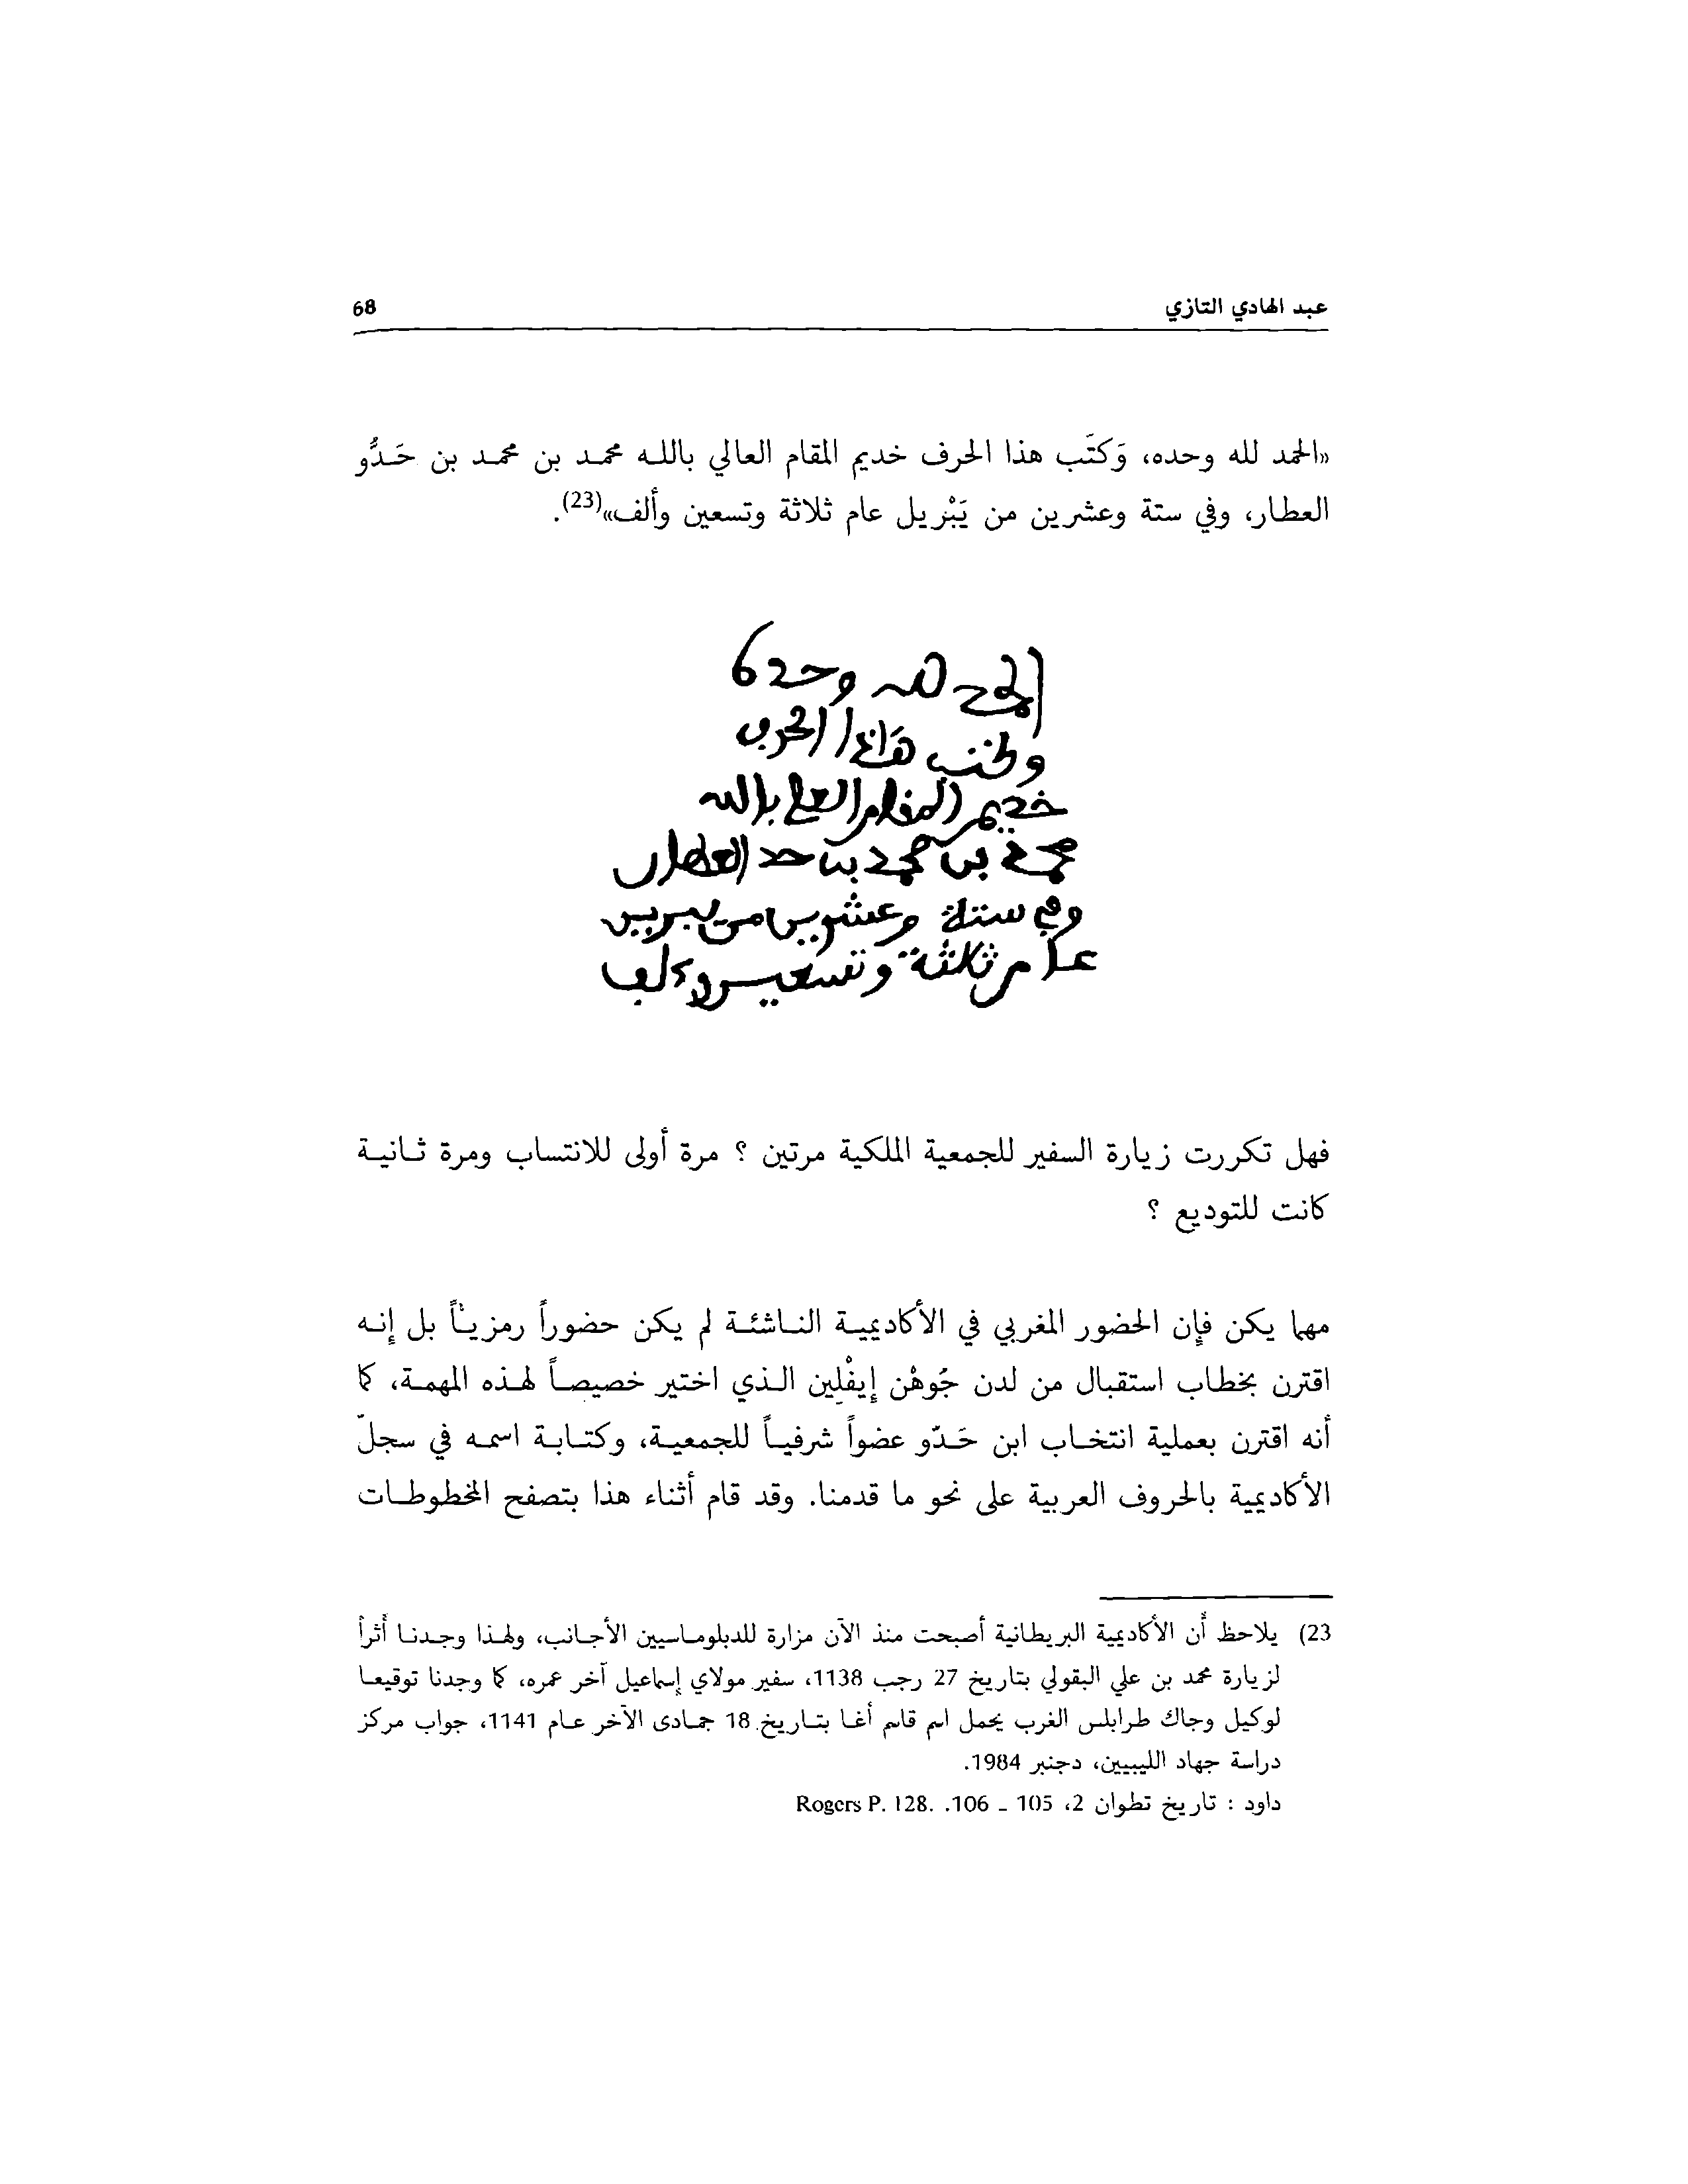 عبد الهادي التازي 68
«الحمد لله وحده، وَكتَب هذا الحرف خديم المقام العالي باللـه محمـد بن محمـد بن حَـدُّو
العطار، وفي ستة وعشرين من يَبْريل عام ثلاثة وتسعين وألف»(23).
الحمد لله وحده
وكتب هاذا الحرف
خديم المقام العلي بالله
محمد بن محمد بن حد العطار
وفي ستة وعشرين من يبرير
عام ثلاثة وتسعين وألف
فهل تكررت زيارة السفير للجمعية الملكية مرتين ؟ مرة أولى للانتساب ومرة ثـانيـة
كانت للتوديع ؟
مهما يكن فإن الحضور المغربي في الأكاديميـة النـاشئـة لم يكن حضوراً رمزيـاً بل إنـه
اقترن بخطاب استقبال من لدن جُوهْن إيفْلِين الـذي اختير خصيصـاً لهـذه المهمـة، كما
أنه اقترن بعملية انتخـاب ابن حَـدّو عضواً شرفيـاً للجمعيـة، وكتـابـة اسمـه في سجلّ
الأكاديمية بالحروف العربية على نحو ما قدمنا. وقد قام أثناء هذا بتصفح المخطوطـات
23) يلاحظ أن الأكاديمية البريطانية أصبحت منذ الآن مزارة للدبلومـاسيين الأجـانب، ولهـذا وجـدنـا أثراً
لزيارة محمد بن علي البقولي بتاريخ 27 رجب 1138، سفير مولاي إسماعيل آخر عمره، كما وجدنا توقيعـا
لوكيل وجاك طرابلس الغرب يحمل اسم قاسم أغـا بتـاريخ 18 جمـادى الآخر عـام 1141، جواب مركز
دراسة جهاد الليبيين، دجنبر 1984.
داود : تاريخ تطوان 2، 105 ـ 106. Rogers P. 128.